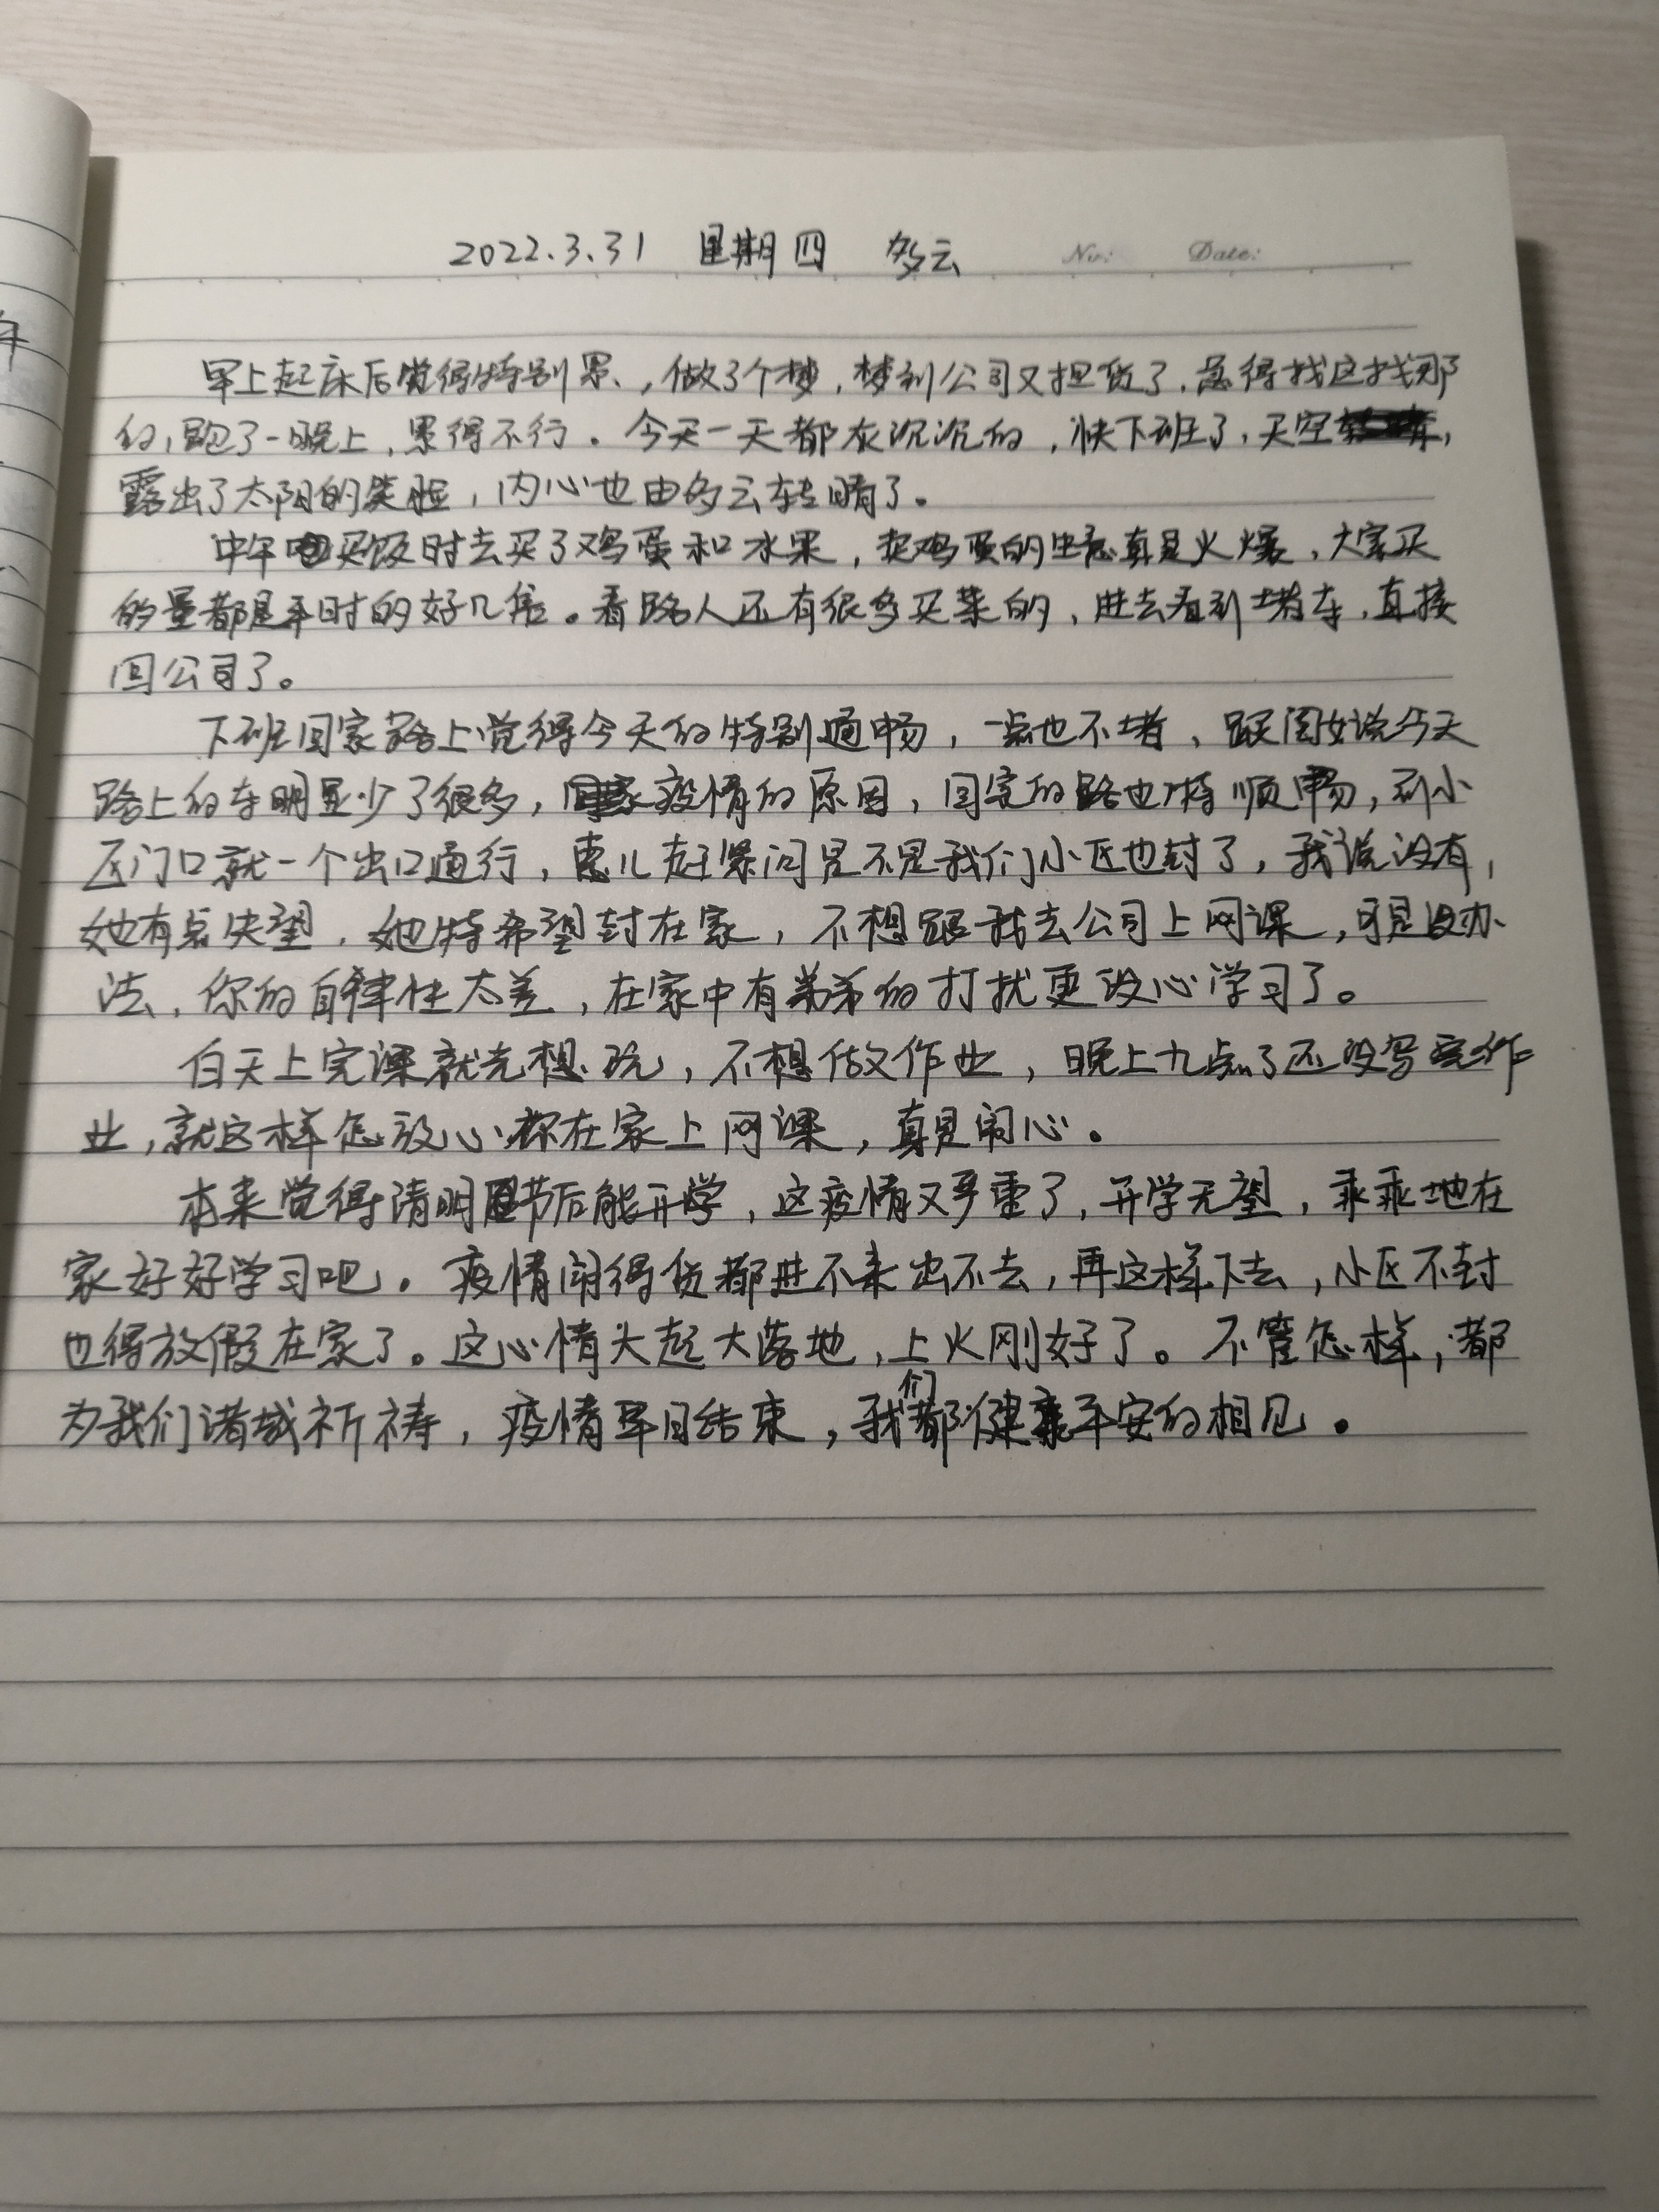 2022.3.31 星期四 多云 No: Date:
早上起床后觉得特别累、，做了个梦，梦到公司又担货了，急得找这找那
的，跑了一晚上，累得不行。今天一天都灰沉沉的，快下班了，天空，
露出了太阳的笑脸，内心也由多云转晴了。
中午买饭时去买了鸡蛋和水果，卖鸡蛋的生意真是火爆，大家买
的量都是平时的好几倍。看路人还有很多买菜的，进去看到堵车，直接
回公司了。
下班回家路上觉得今天的特别通畅，一点也不堵，跟闺女说今天
路上的车明显少了很多，疫情的原因，回家的路也特顺畅，到小
区门口就一个出口通行，惠儿赶紧问是不是我们小区也封了，我说没有，
她有点失望，她特希望封在家，不想跟我去公司上网课，可是没办
法，你的自律性太差，在家中有弟弟的打扰更没心学习了。
白天上完课就先想玩，不想做作业，晚上九点了还没写完作
业，就这样怎放心你在家上网课，真是闹心。
本来觉得清明节后能开学，这疫情又严重了，开学无望，乖乖地在
家好好学习吧。疫情闹得货都进不来出不去，再这样下去，小区不封
也得放假在家了。这心情大起大落地，上火刚好了。不管怎样，都
为我们诸城祈祷，疫情早日结束，我们都健康平安的相见。